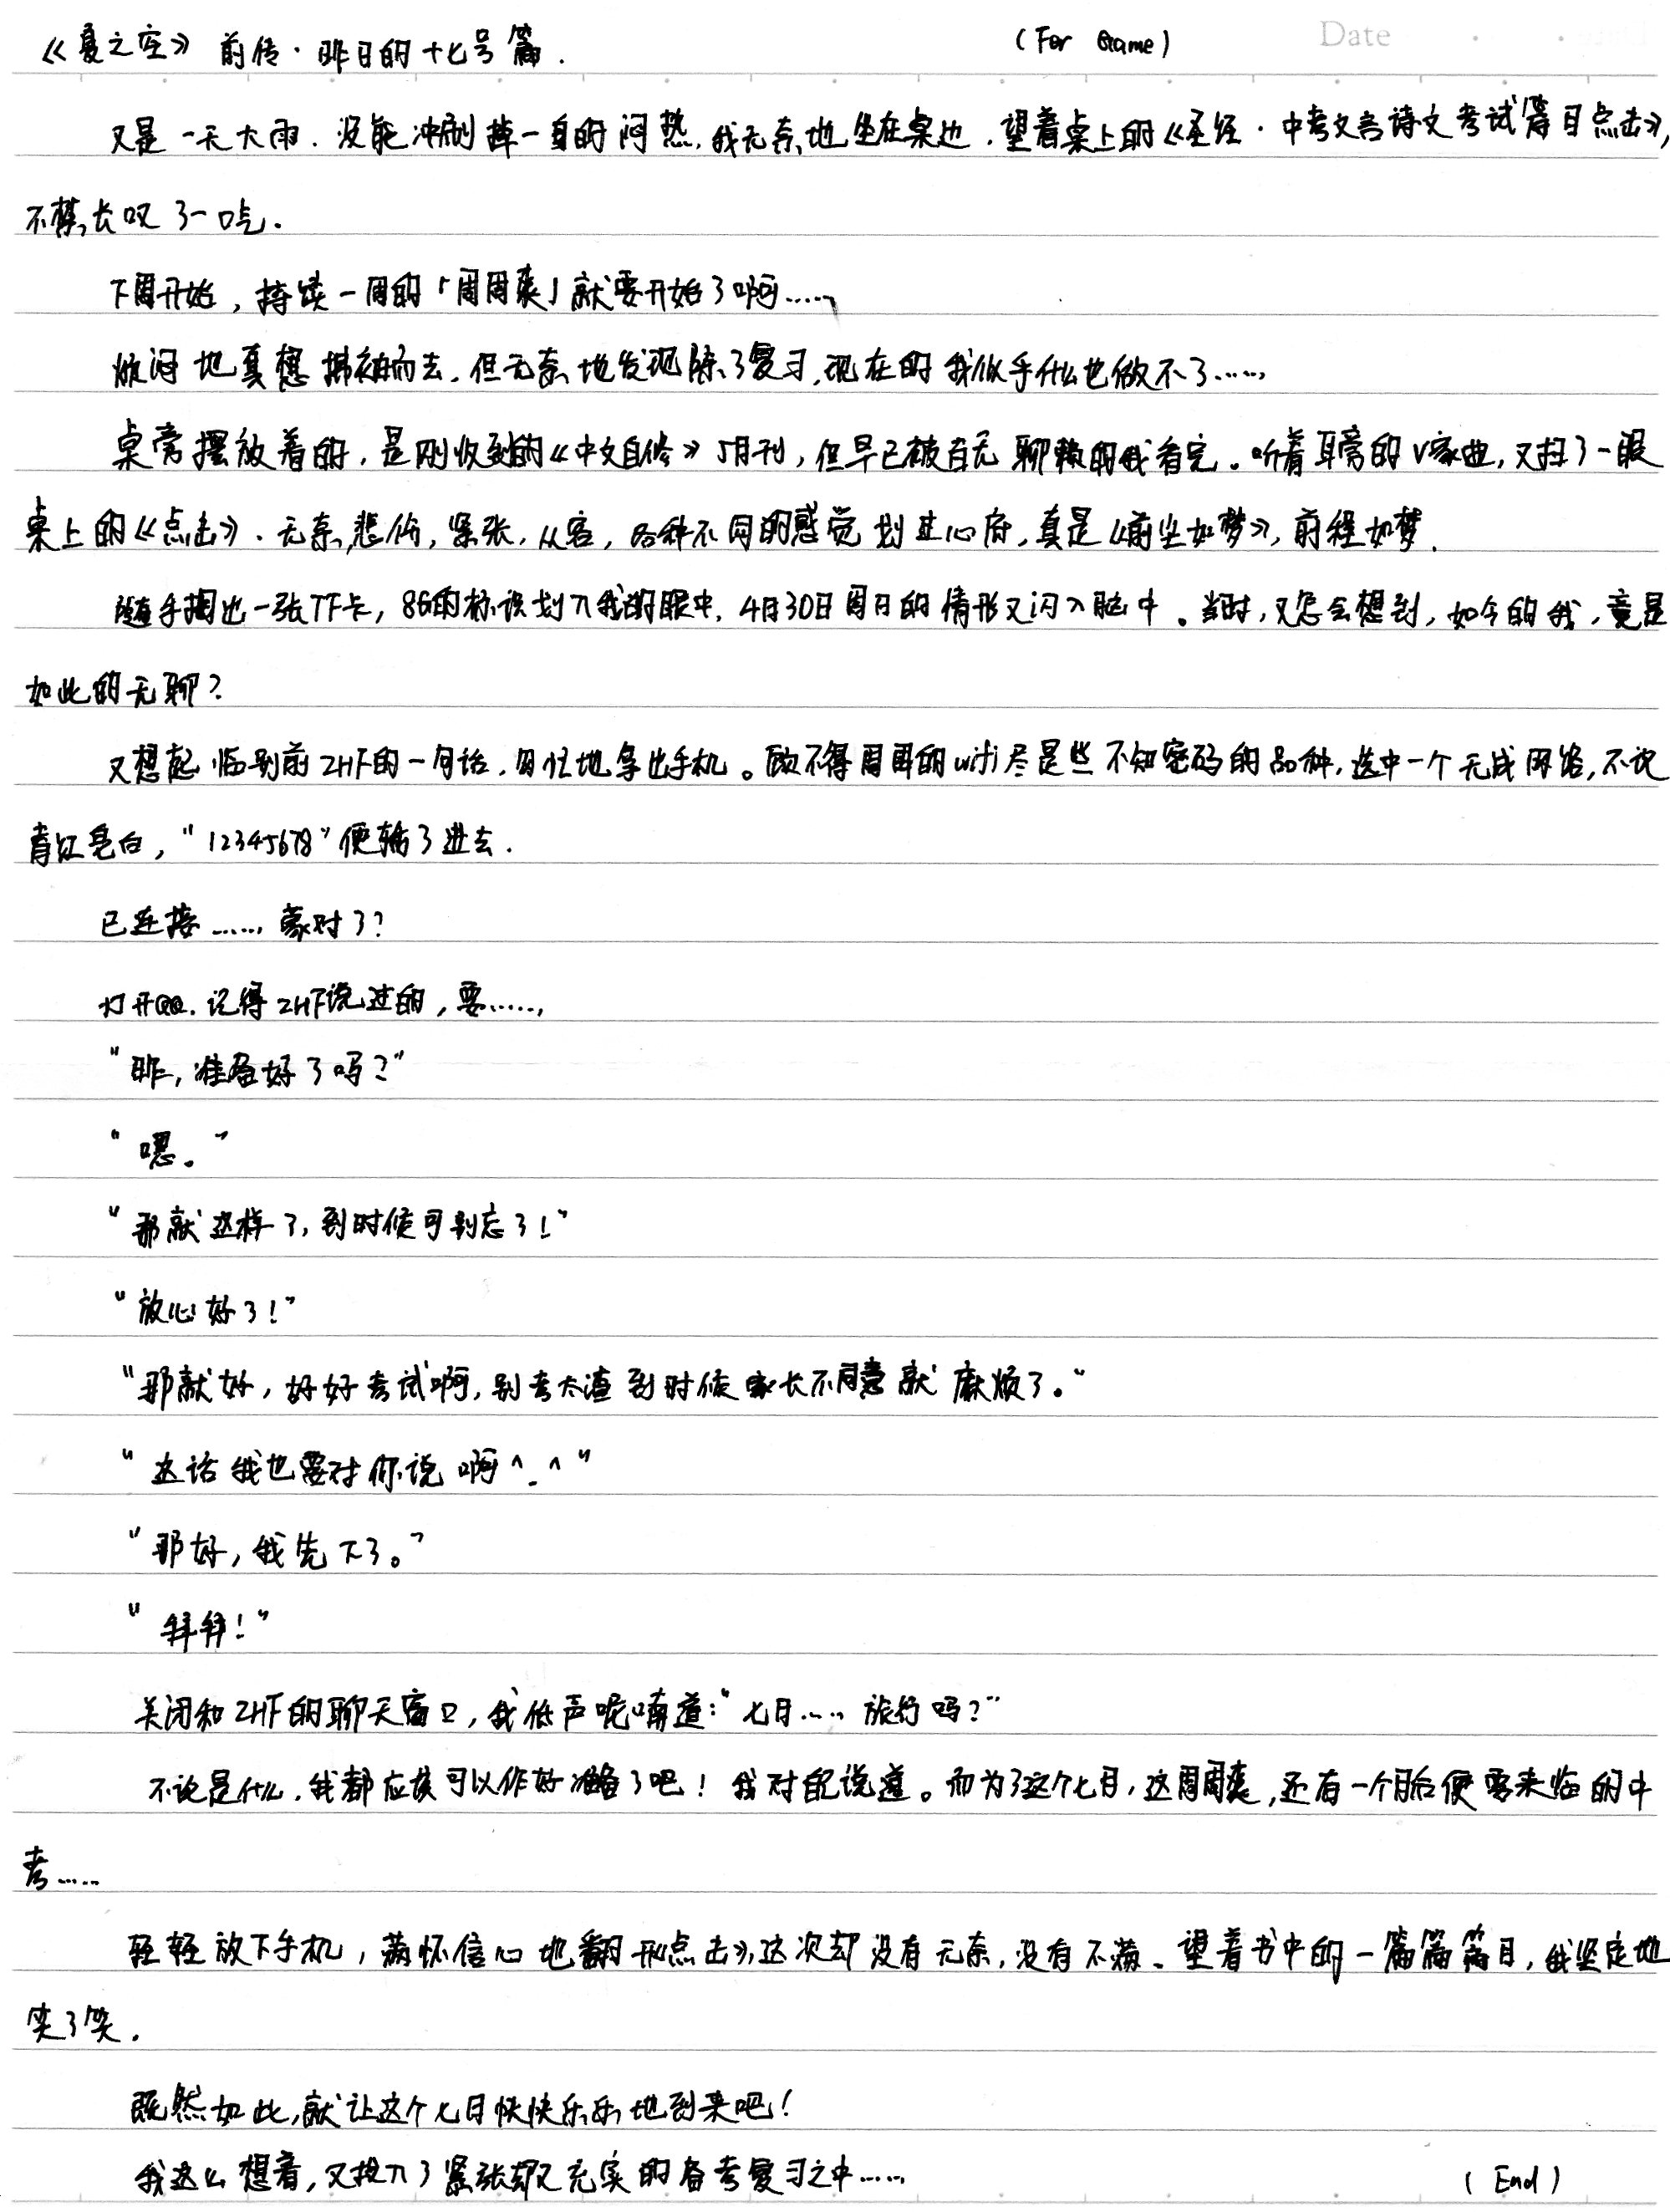 《夏之空》 前传·昨日的十七号篇. (For Game) Date
又是一天大雨. 没能冲刷掉一身的闷热, 我无奈地坐在桌边, 望着桌上的《圣经·中考文言诗文考试篇目点击》,
不禁长叹了一口气.
下周开始, 持续一周的「周周爽」就要开始了啊……
烦闷地真想拂袖而去, 但无奈地发现除了复习, 现在的我似乎什么也做不了……
桌旁摆放着的, 是刚收到的《中文自修》5月刊, 但早已被百无聊赖的我看完。听着耳旁的V家曲, 又扫了一眼
桌上的《点击》. 无奈, 悲伤, 紧张, 从容, 各种不同的感觉划过心府, 真是《前尘如梦》, 前程如梦.
随手掏出一张TF卡, 8G的标识划入我的眼中, 4月30日周日的情形又闪入脑中。当时, 又怎会想到, 如今的我, 竟是
如此的无聊?
又想起临别前ZHF的一句话, 匆忙地拿出手机。顾不得周围的wifi尽是些不知密码的品种, 选中一个无线网络, 不论
青红皂白, "12345678"便输了进去.
已连接…… 蒙对了?
打开QQ. 记得ZHF说过的, 要……
"昨, 准备好了吗?"
"嗯。"
"那就这样了, 到时候可别忘了!"
"放心好了!"
"那就好, 好好考试啊, 别考太渣到时候家长不同意就麻烦了。"
"这话我也要对你说啊^_^"
"那好, 我先下了。"
"拜拜!"
关闭和ZHF的聊天窗口, 我低声呢喃道: "七月…… 旅行吗?"
不论是什么, 我都应该可以作好准备了吧! 我对自己说道。而为了这个七月, 这周周爽, 还有一个月后便要来临的中
考……
轻轻放下手机, 满怀信心地翻开《点击》, 这次却没有无奈, 没有不满. 望着书中的一篇篇篇目, 我坚定地
笑了笑.
既然如此, 就让这个七月快快乐乐地到来吧!
我这么想着, 又投入了紧张却又充实的备考复习之中…… (End)